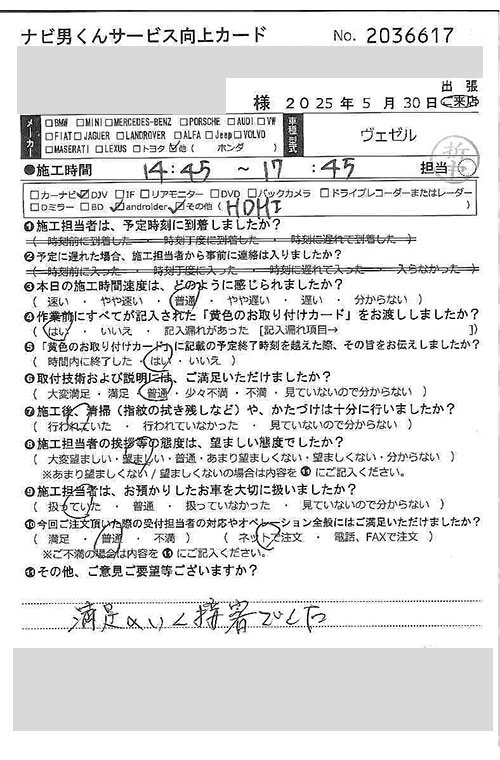 ナビ男くんサービス向上カード No. 2036617
出張
様 2025年5月30日 ・ 来店
メーカー
□BMW □MINI □MERCEDES-BENZ □PORSCHE □AUDI □VW
□FIAT □JAGUER □LANDROVER □ALFA □Jeep □VOLVO
□MASERATI □LEXUS □トヨタ ☑他 ( ホンダ )
車種型式
ヴェゼル
●施工時間 14:45 ~ 17:45 担当
□カーナビ ☑DJV □IF □リアモニター □DVD □バックカメラ □ドライブレコーダーまたはレーダー
□Dミラー □BD ☑androider ☑その他 ( HDMI )
❶施工担当者は、予定時刻に到着しましたか?
( 時刻前に到着した ・ 時刻丁度に到着した ・ 時刻に遅れて到着した )
❷予定に遅れた場合、施工担当者から事前に連絡は入りましたか?
( 時刻前に入った ・ 時刻丁度に入った ・ 時刻に遅れて入った ・ 入らなかった )
❸本日の施工時間速度は、どのように感じられましたか?
( 速い ・ やや速い ・ 普通 ・ やや遅い ・ 遅い ・ 分からない )
❹作業前にすべてが記入された「黄色のお取り付けカード」をお渡ししましたか?
( はい ・ いいえ ・ 記入漏れがあった [記入漏れ項目→ ] )
❺「黄色のお取り付けカード」に記載の予定終了時刻を越えた際、その旨をお伝えしましたか?
( 時間内に終了した ・ はい ・ いいえ )
❻取付技術および説明には、ご満足いただけましたか?
( 大変満足 ・ 満足 ・ 普通 ・ 少々不満 ・ 不満 ・ 見ていないので分からない )
❼施工後、清掃(指紋の拭き残しなど)や、かたづけは十分に行いましたか?
( 行われていた ・ 行われていなかった ・ 見ていないので分からない )
❽施工担当者の挨拶等の態度は、望ましい態度でしたか?
( 大変望ましい・望ましい・普通・あまり望ましくない・望ましくない・分からない )
※あまり望ましくない / 望ましくないの場合は内容を ⓫ にご記入ください。
❾施工担当者は、お預かりしたお車を大切に扱いましたか?
( 扱っていた ・ 普通 ・ 扱っていなかった ・ 見ていないので分からない )
❿今回ご注文頂いた際の受付担当者の対応やオペレーション全般にはご満足いただけましたか?
( 満足 ・ 普通 ・ 不満 ) ( ネットで注文 ・ 電話、FAXで注文 )
※ご不満の場合は内容を ⓫ にご記入ください。
⓫その他、ご意見ご要望等ございますか?
満足のいく接客でした